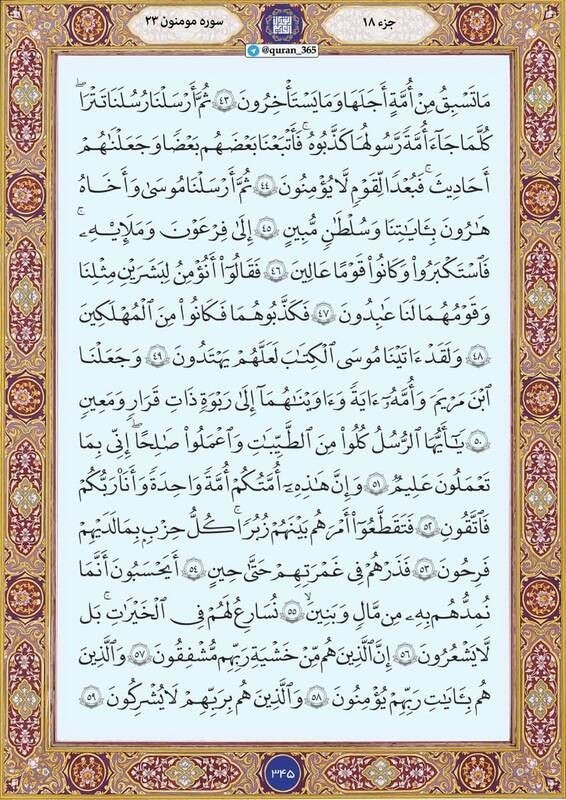 جزء ۱۸
سوره مومنون ۲۳
@quran_365
مَا تَسْبِقُ مِنْ أُمَّةٍ أَجَلَهَا وَمَا يَسْتَأْخِرُونَ ٤٣ ثُمَّ أَرْسَلْنَا رُسُلَنَا تَتْرَا ۖ
كُلَّ مَا جَآءَ أُمَّةً رَّسُولُهَا كَذَّبُوهُ ۚ فَأَتْبَعْنَا بَعْضَهُم بَعْضًا وَجَعَلْنَٰهُمْ
أَحَادِيثَ ۚ فَبُعْدًا لِّقَوْمٍ لَّا يُؤْمِنُونَ ٤٤ ثُمَّ أَرْسَلْنَا مُوسَىٰ وَأَخَاهُ
هَٰرُونَ بِـَٔايَٰتِنَا وَسُلْطَٰنٍ مُّبِينٍ ٤٥ إِلَىٰ فِرْعَوْنَ وَمَلَإِي۟هِۦ
فَٱسْتَكْبَرُوا۟ وَكَانُوا۟ قَوْمًا عَالِينَ ٤٦ فَقَالُوٓا۟ أَنُؤْمِنُ لِبَشَرَيْنِ مِثْلِنَا
وَقَوْمُهُمَا لَنَا عَٰبِدُونَ ٤٧ فَكَذَّبُوهُمَا فَكَانُوا۟ مِنَ ٱلْمُهْلَكِينَ
٤٨ وَلَقَدْ ءَاتَيْنَا مُوسَى ٱلْكِتَٰبَ لَعَلَّهُمْ يَهْتَدُونَ ٤٩ وَجَعَلْنَا
ٱبْنَ مَرْيَمَ وَأُمَّهُۥٓ ءَايَةً وَءَاوَيْنَٰهُمَآ إِلَىٰ رَبْوَةٍ ذَاتِ قَرَارٍ وَمَعِينٍ
٥٠ يَٰٓأَيُّهَا ٱلرُّسُلُ كُلُوا۟ مِنَ ٱلطَّيِّبَٰتِ وَٱعْمَلُوا۟ صَٰلِحًا ۖ إِنِّى بِمَا
تَعْمَلُونَ عَلِيمٌ ٥١ وَإِنَّ هَٰذِهِۦٓ أُمَّتُكُمْ أُمَّةً وَٰحِدَةً وَأَنَا۠ رَبُّكُمْ
فَٱتَّقُونِ ٥٢ فَتَقَطَّعُوٓا۟ أَمْرَهُم بَيْنَهُمْ زُبُرًا ۖ كُلُّ حِزْبٍۭ بِمَا لَدَيْهِمْ
فَرِحُونَ ٥٣ فَذَرْهُمْ فِى غَمْرَتِهِمْ حَتَّىٰ حِينٍ ٥٤ أَيَحْسَبُونَ أَنَّمَا
نُمِدُّهُم بِهِۦ مِن مَّالٍ وَبَنِينَ ٥٥ نُسَارِعُ لَهُمْ فِى ٱلْخَيْرَٰتِ ۚ بَل
لَّا يَشْعُرُونَ ٥٦ إِنَّ ٱلَّذِينَ هُم مِّنْ خَشْيَةِ رَبِّهِم مُّشْفِقُونَ ٥٧ وَٱلَّذِينَ
هُم بِـَٔايَٰتِ رَبِّهِمْ يُؤْمِنُونَ ٥٨ وَٱلَّذِينَ هُم بِرَبِّهِمْ لَا يُشْرِكُونَ ٥٩
۳۴۵